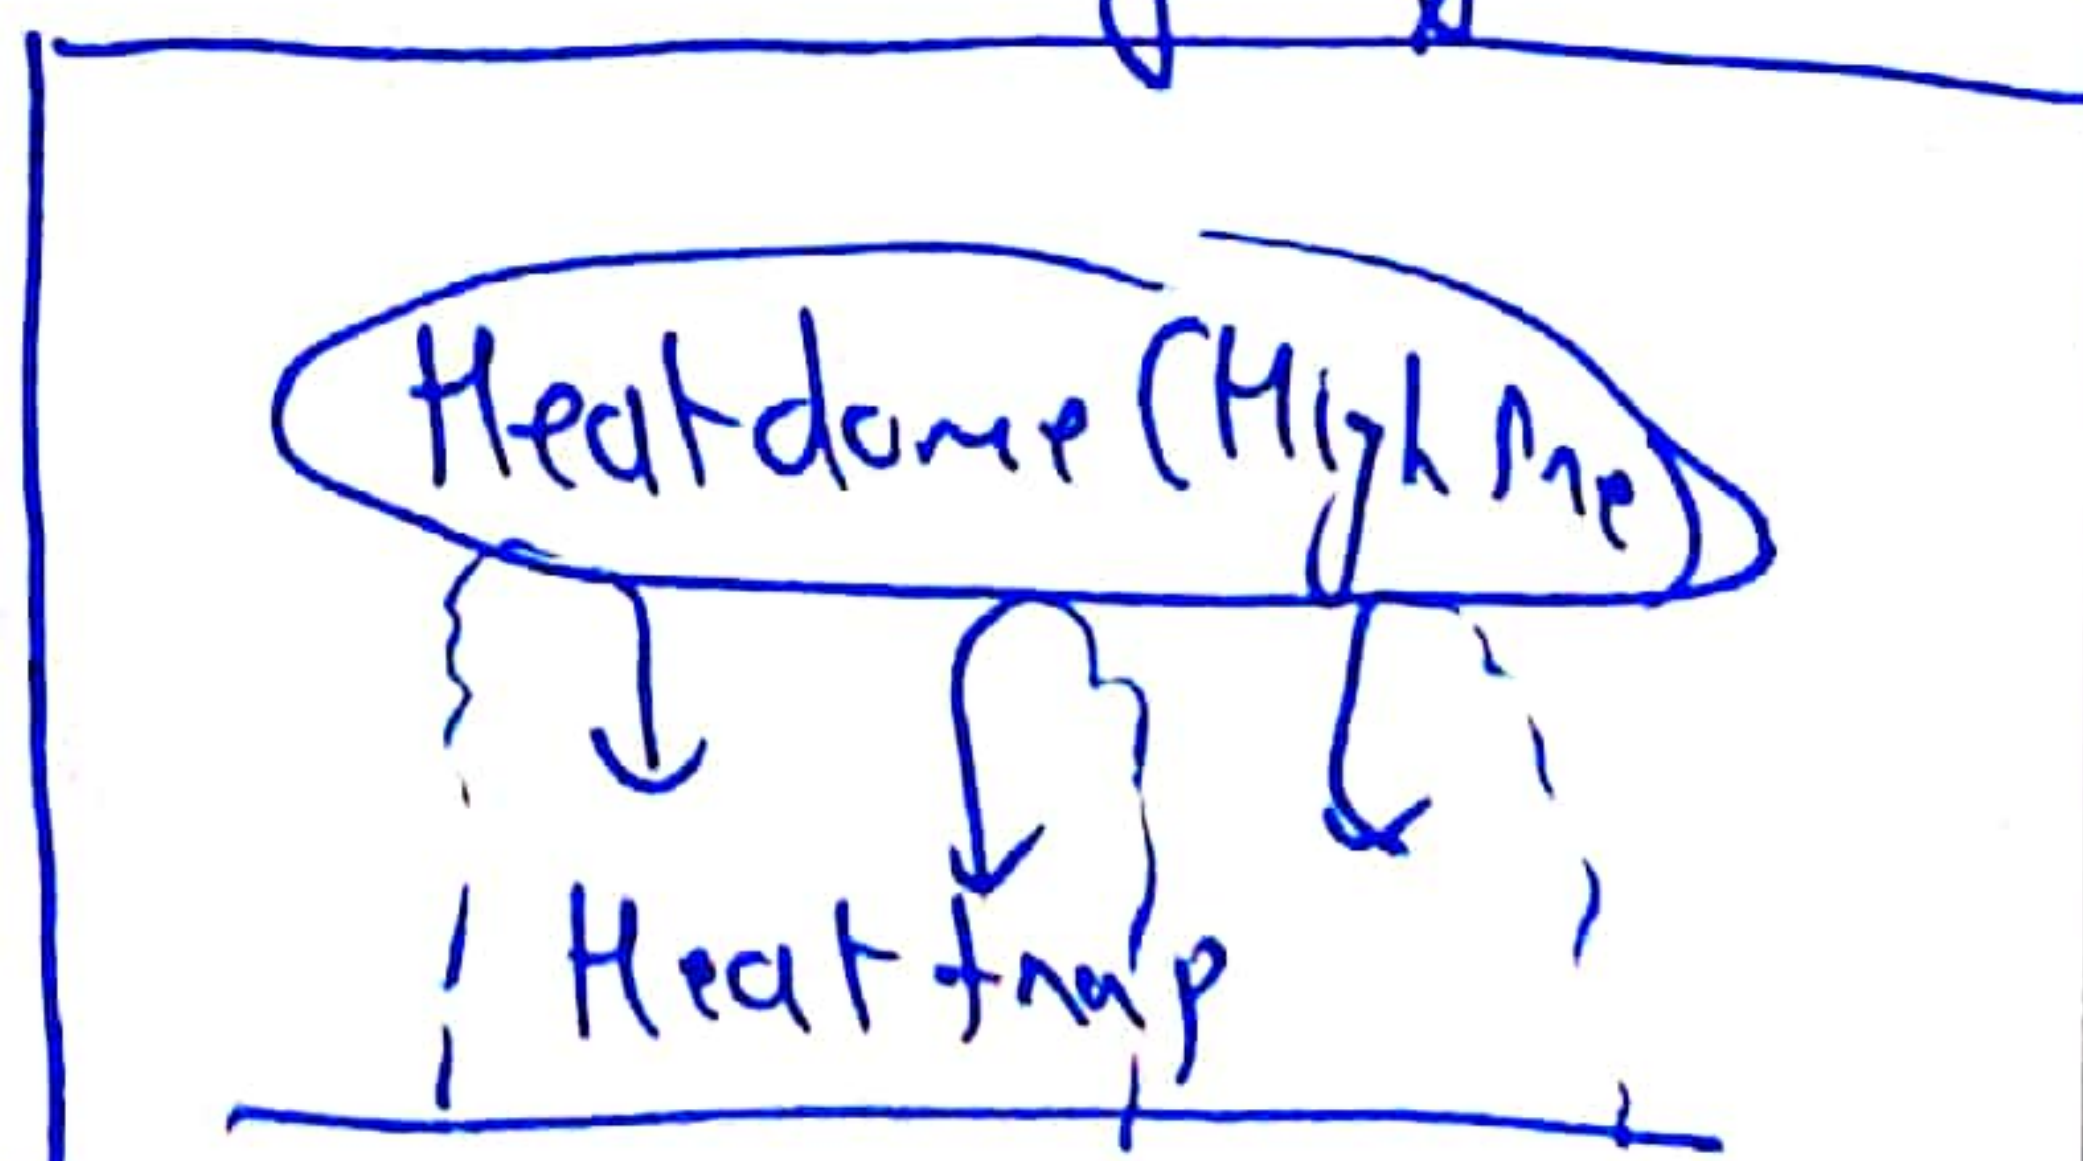 Heat dome (High Pre
Heat trap